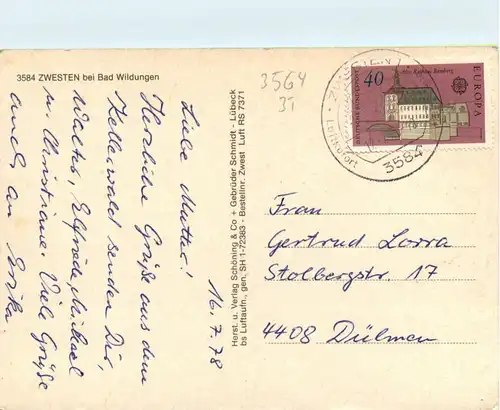 3584 ZWESTEN bei Bad Wildungen
16.7.78
Liebe Mutter!
Herzliche Grüße aus dem
Kellerwald senden Dir,
Walter, Elfriede, Michael
u. Christiane. Viele Grüße
auch an Erika
Herst. u. Verlag Schöning & Co + Gebrüder Schmidt - Lübeck
bs Luftaufn., gen. SH 1-72383 - Bestellnr. Zwest Luft RS 7371
3564
31
40
Altes Rathaus Bamberg
EUROPA
DEUTSCHE BUNDESPOST
ZWESTEN
Luftkurort
3584
Frau
Gertrud Lorra
Stolbergstr. 17
4408 Dülmen